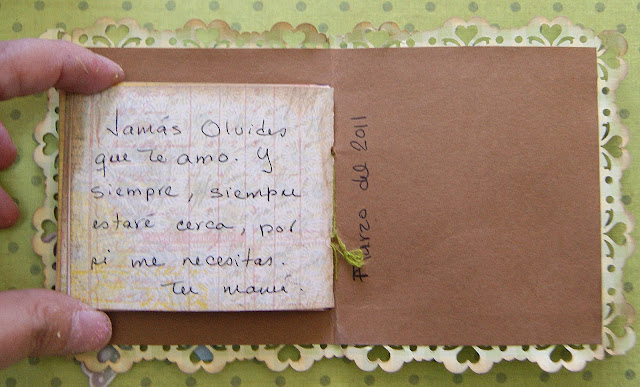 Jamás Olvides
que te amo. Y
siempre, siempre
estaré cerca, por
si me necesitas.
Tu mamá.
Marzo del 2011